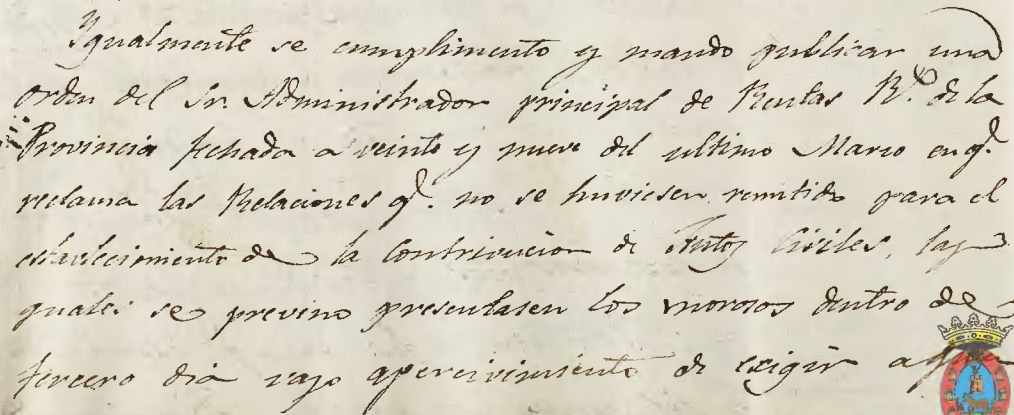 Ygualmente se cumplimento y mando publicar una
orden del Sr. Administrador principal de Rentas Rs. de la
Provincia fechada a veinte y nueve del ultimo Marzo en q.
reclama las Relaciones q. no se huviesen remitido para el
establecimiento de la Contrivucion de frutos Civiles, las
quales se previno presentasen los morosos dentro de
tercero dia vajo apercivimiento de exigir a